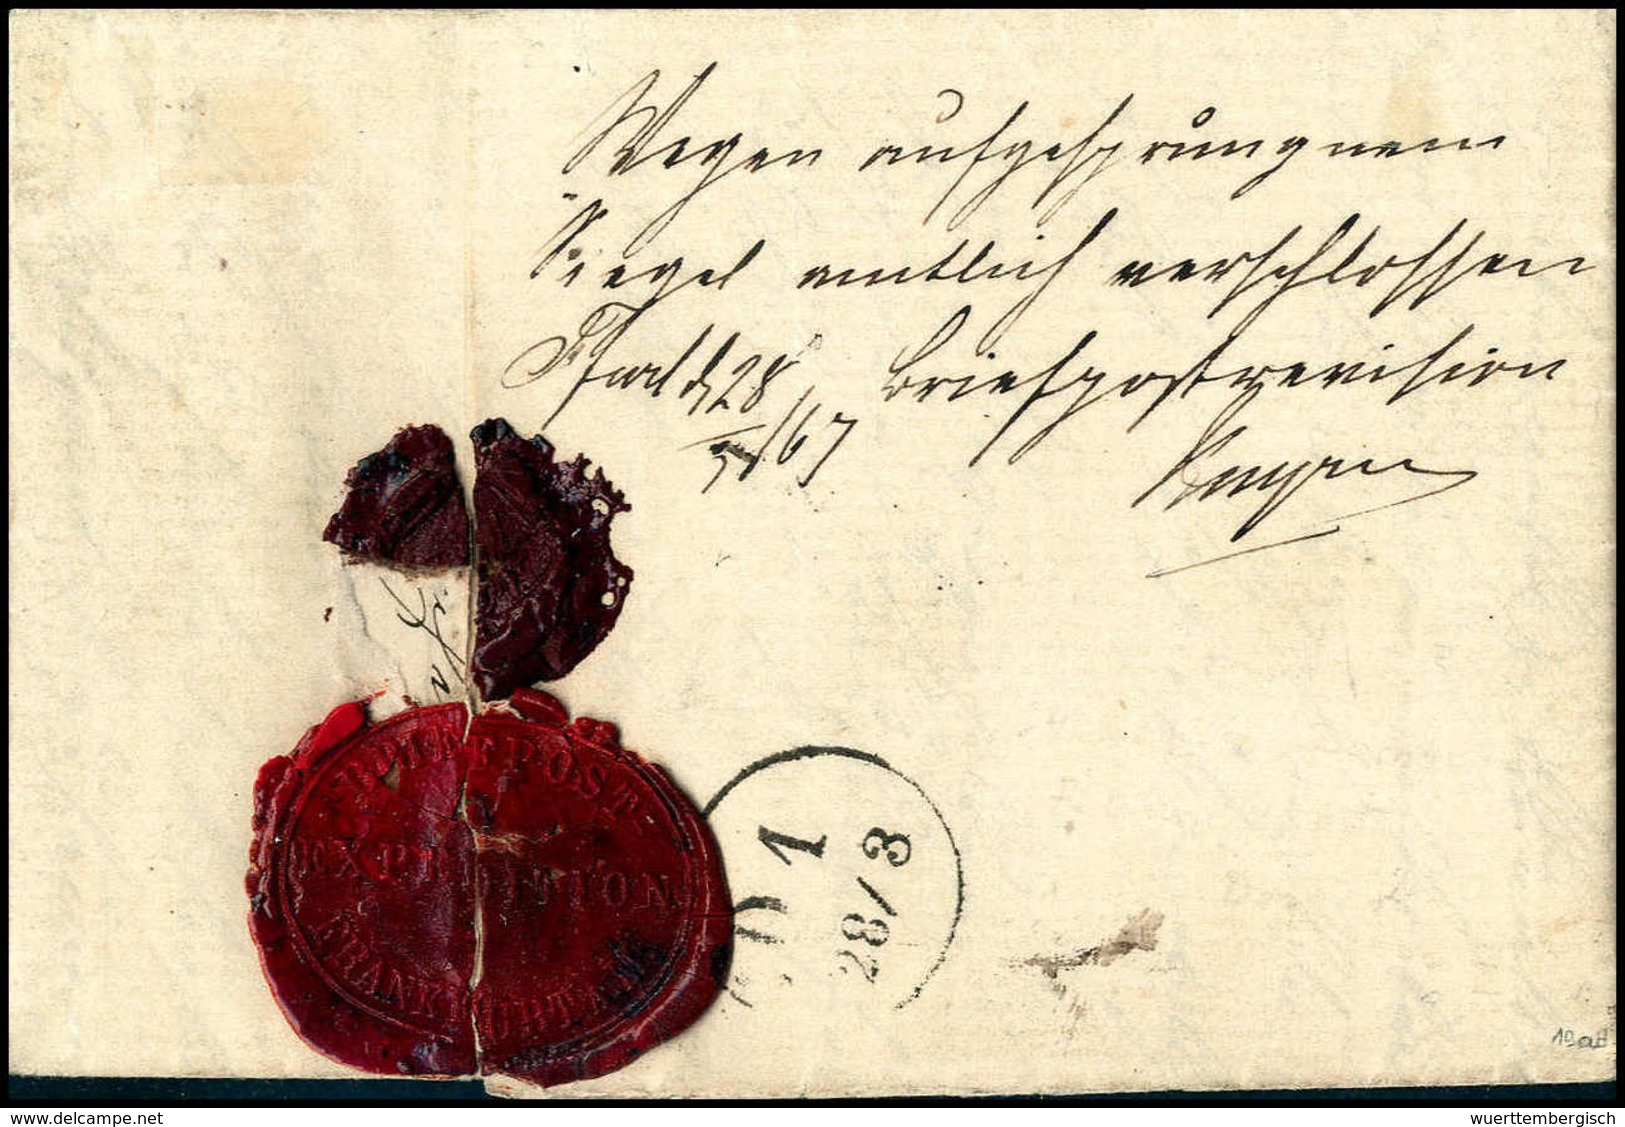 Wegen aufgesprungnem
Siegel amtlich verschlossen
28/3/67 Briefpostrevision
BRIEFPOST
EXPEDITION
FRANKFURT A/M
D 1
28/3
19 aH
www.delcampe.net
wuerttembergisch